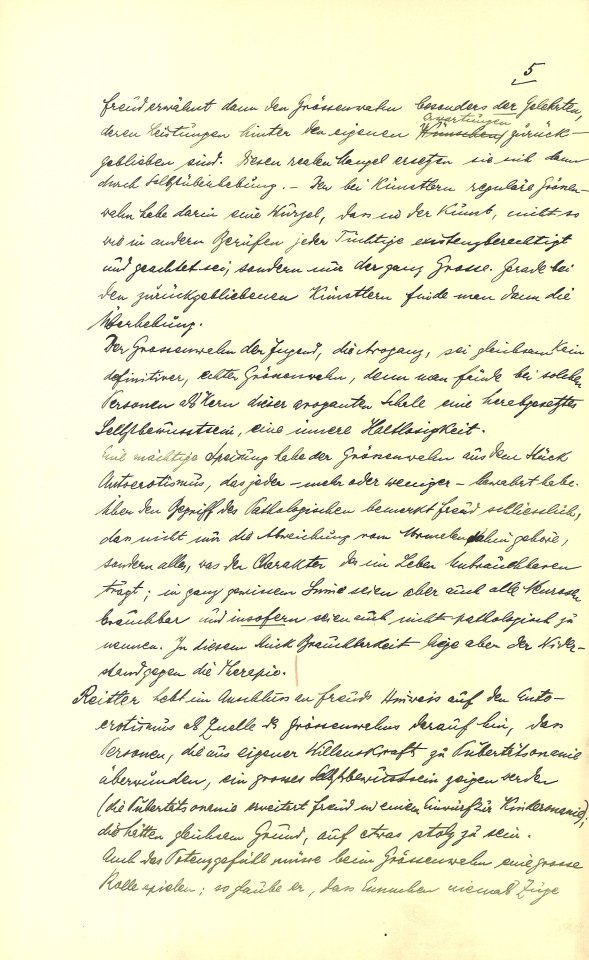 5
Freud erwähnt dann den Grössenwahn besonders der Gelehrten,
Erwartungen
deren Leistungen hinter den eigenen Wünschen zurück-
geblieben sind. Diesen realen Mangel ersetzen sie sich dann
durch Selbstüberhebung. – Der bei Künstlern reguläre Grössen-
wahn habe darin eine Wurzel, dass in der Kunst, nicht so
wie in andern Berufen jeder Tüchtige existenzberechtigt
und geachtet sei, sondern nur der ganz Grosse. Gerade bei
den zurückgebliebenen Künstlern finde man dann die
Überhebung.
Der Grössenwahn der Jugend, die Arroganz, sei gleichsam kein
definitiver, echter Grössenwahn, denn man finde bei solchen
Personen als Kern dieser arroganten Schale eine herabgesetztes
Selbstbewusstsein, eine innere Haltlosigkeit.
Eine mächtige Speisung habe der Grössenwahn aus dem Stück
Autoerotismus, das jeder – mehr oder weniger – bewahrt habe.
Über den Begriff des Pathologischen bemerkt Freud schliesslich,
dass nicht nur die Abweichung vom Normalen dahin gehöre,
sondern alles, was den Charakter des im Leben Unbrauchbaren
trägt; in ganz gewissem Sinne seien aber auch alle Neurosen
brauchbar und insofern seien auch nicht pathologisch zu
nennen. In diesem Stück Brauchbarkeit liege aber der Wider-
stand gegen die Therapie.
Reitler hebt im Anschluss an Freuds Hinweis auf den Auto-
erotismus als Quelle des Grössenwahns darauf hin, dass
Personen, die aus eigener Willenskraft zu Pubertätsonanie
überwunden, ein grosses Selbstbewusstsein zeigen werden
(die Pubertätsonanie erweitert Freud in einem Einwurf zur Kinderonanie);
die hätten gleichsam Grund, auf etwas stolz zu sein.
Auch das Potenzgefühl müsse beim Grössenwahn eine grosse
Rolle spielen; so glaube er, dass Eunuchen niemals Züge